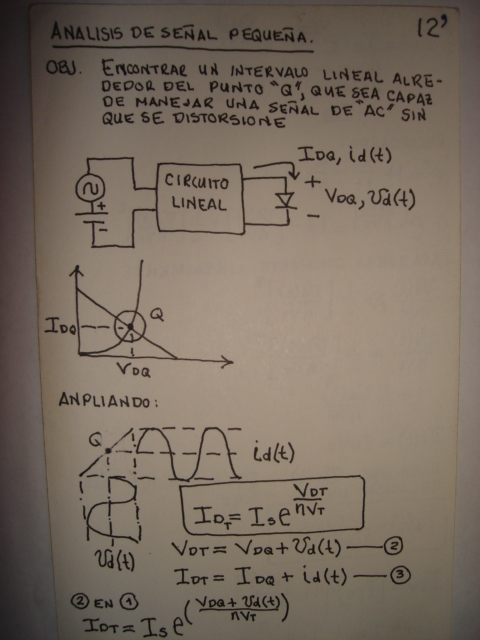 12'
ANALISIS DE SEÑAL PEQUEÑA.
OBJ. ENCONTRAR UN INTERVALO LINEAL ALRE-
DEDOR DEL PUNTO "Q", QUE SEA CAPAZ
DE MANEJAR UNA SEÑAL DE "AC" SIN
QUE SE DISTORSIONE
I_DQ, id(t)
CIRCUITO
LINEAL
+
V_DQ, vd(t)
-
+
-
Q
I_DQ
V_DQ
ANPLIANDO:
Q
id(t)
I_DT = I_S e^(V_DT/nV_T)
vd(t)
V_DT = V_DQ + vd(t) — ②
I_DT = I_DQ + id(t) — ③
② EN ①
I_DT = I_S e^((V_DQ + vd(t))/nV_T)